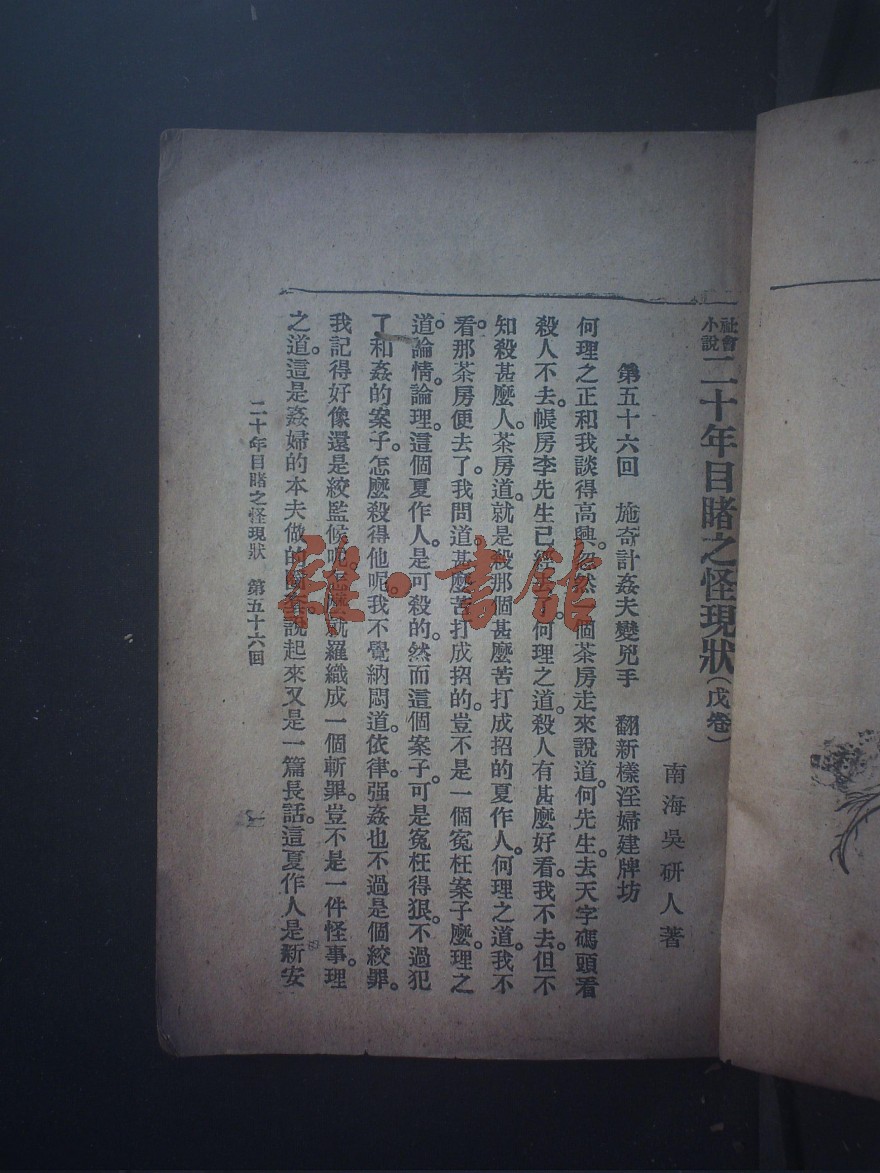 社會小說 二十年目睹之怪現狀(戊卷)
南海吳硏人著
第五十六回 施奇計姦夫變兇手 翻新樣淫婦建牌坊
何理之正和我談得高興。忽然一個茶房走來說道。何先生。去天字碼頭看
殺人不去。帳房李先生已經去了。何理之道。殺人有甚麼好看。我不去。但不
知殺甚麼人。茶房道。就是殺那個甚麼苦打成招的夏作人。何理之道。我不
看。那茶房便去了。我問道。甚麼苦打成招的。豈不是一個寃枉案子麼。理之
道。論情論理。這個夏作人。是可殺的。然而這個案子。可是寃枉得狠。不過犯
了和姦的案子。怎麼殺得他呢。我不覺納悶道。依律强姦也不過是個絞罪。
我記得好像還是絞監候呢。怎麼就羅織成一個斬罪。豈不是一件怪事。理
之道。這是姦婦的本夫做的。說起來又是一篇長話。這夏作人是新安
二十年目睹之怪現狀 第五十六回
一
雜·書館